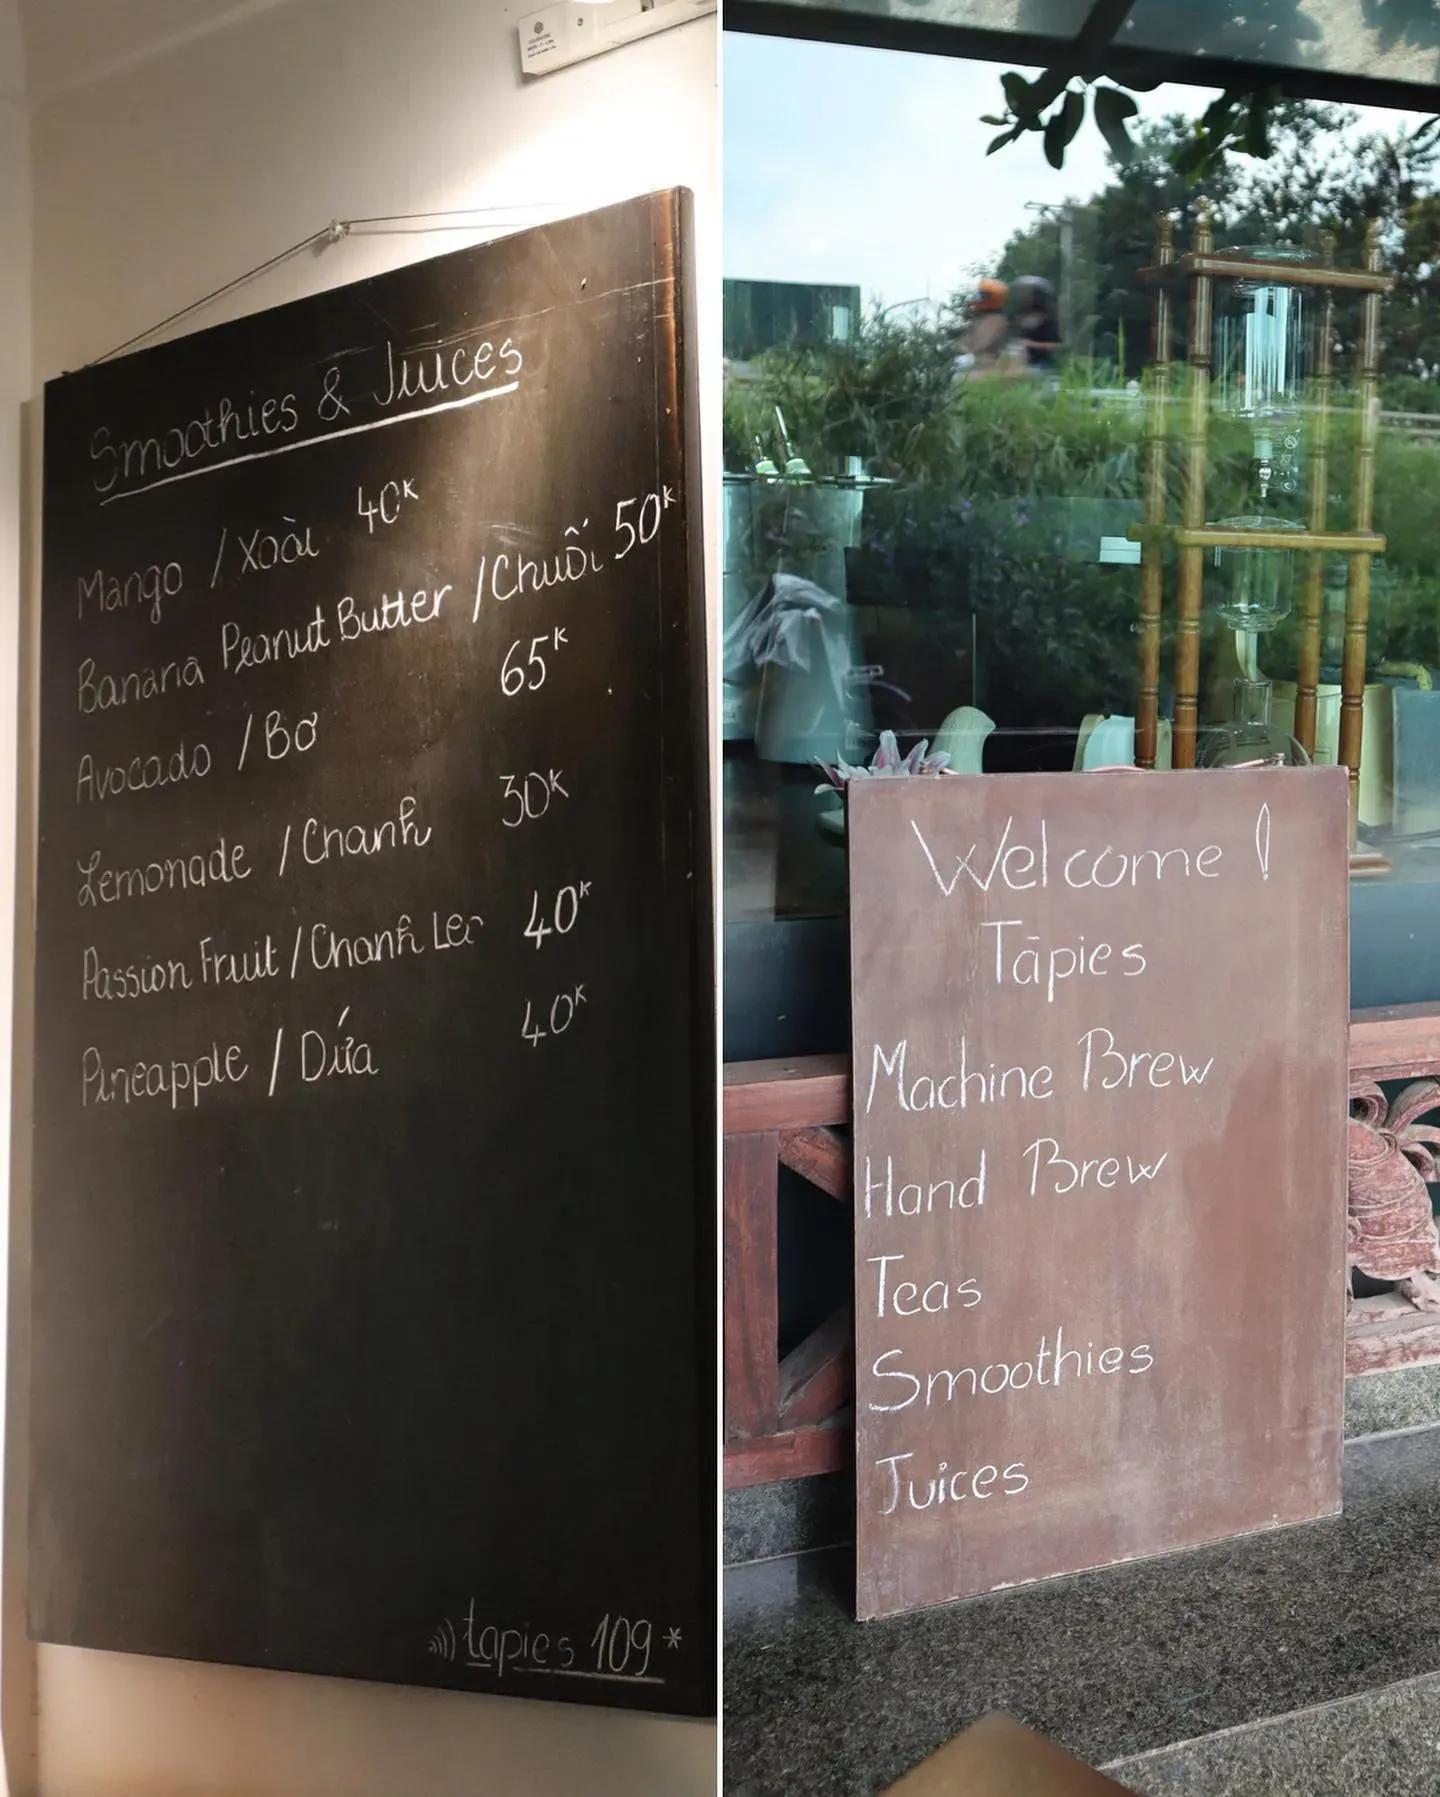 Smoothies & Juices
Mango / Xoài 40K
Banana Peanut Butter / Chuối 50K
Avocado / Bơ 65K
Lemonade / Chanh 30K
Passion Fruit / Chanh Leo 40K
Pineapple / Dứa 40K
tapies 109*
Welcome !
Tāpies
Machine Brew
Hand Brew
Teas
Smoothies
Juices